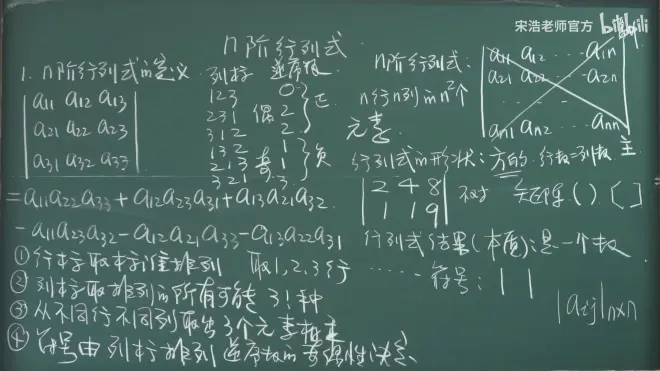 宋浩老师官方 bilibili
n阶行列式
1. n阶行列式的定义
a11 a12 a13
a21 a22 a23
a31 a32 a33
列标 逆序数
123 0
231 偶 2 正
312 2
132 1
213 奇 1 负
321 3
= a11a22a33 + a12a23a31 + a13a21a32
- a11a23a32 - a12a21a33 - a13a22a31
① 行标取标准排列 取1,2,3行
② 列标取排列的所有可能 3!种
③ 从不同行不同列取出3个元素相乘
④ 符号由列标排列逆序数的奇偶性决定
n阶行列式:
a11 a12 ... a1n
a21 a22 ... a2n
... ...
an1 an2 ... ann
主
n行n列的n²个
元素.
行列式的形状: 方的. 行数=列数
2 4 8
1 1 9
不对 矩阵 ( ) [ ]
行列式结果(本质): 是一个数
...... 符号: | |
|aij|n×n